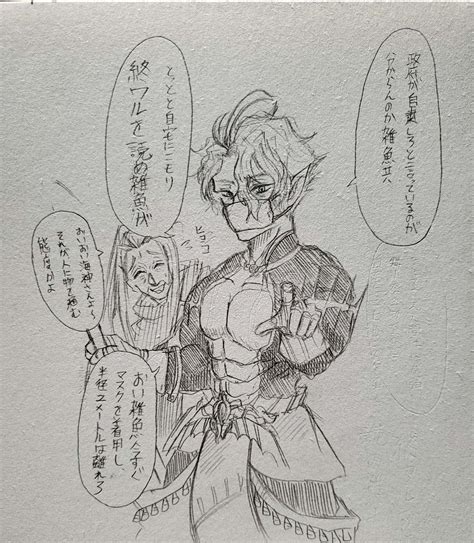 政府が自粛しろと言っているのが
分からんのか雑魚共
とっとと自宅にこモリ
終ワルを読め雑魚が
ヒョコ
おいおい海神さんよ〜
それが人に物を頼む
態度かよ
おい雑魚今すぐ
マスクを着用し
半径2メートルは離れろ